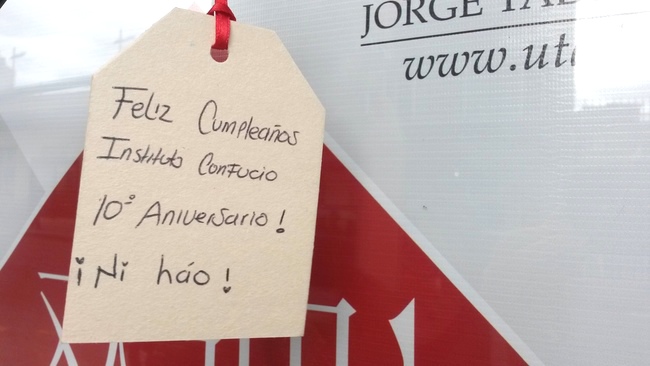 JORGE
www.ut
Feliz Cumpleaños
Instituto Confucio
10° Aniversario!
¡Ni háo!